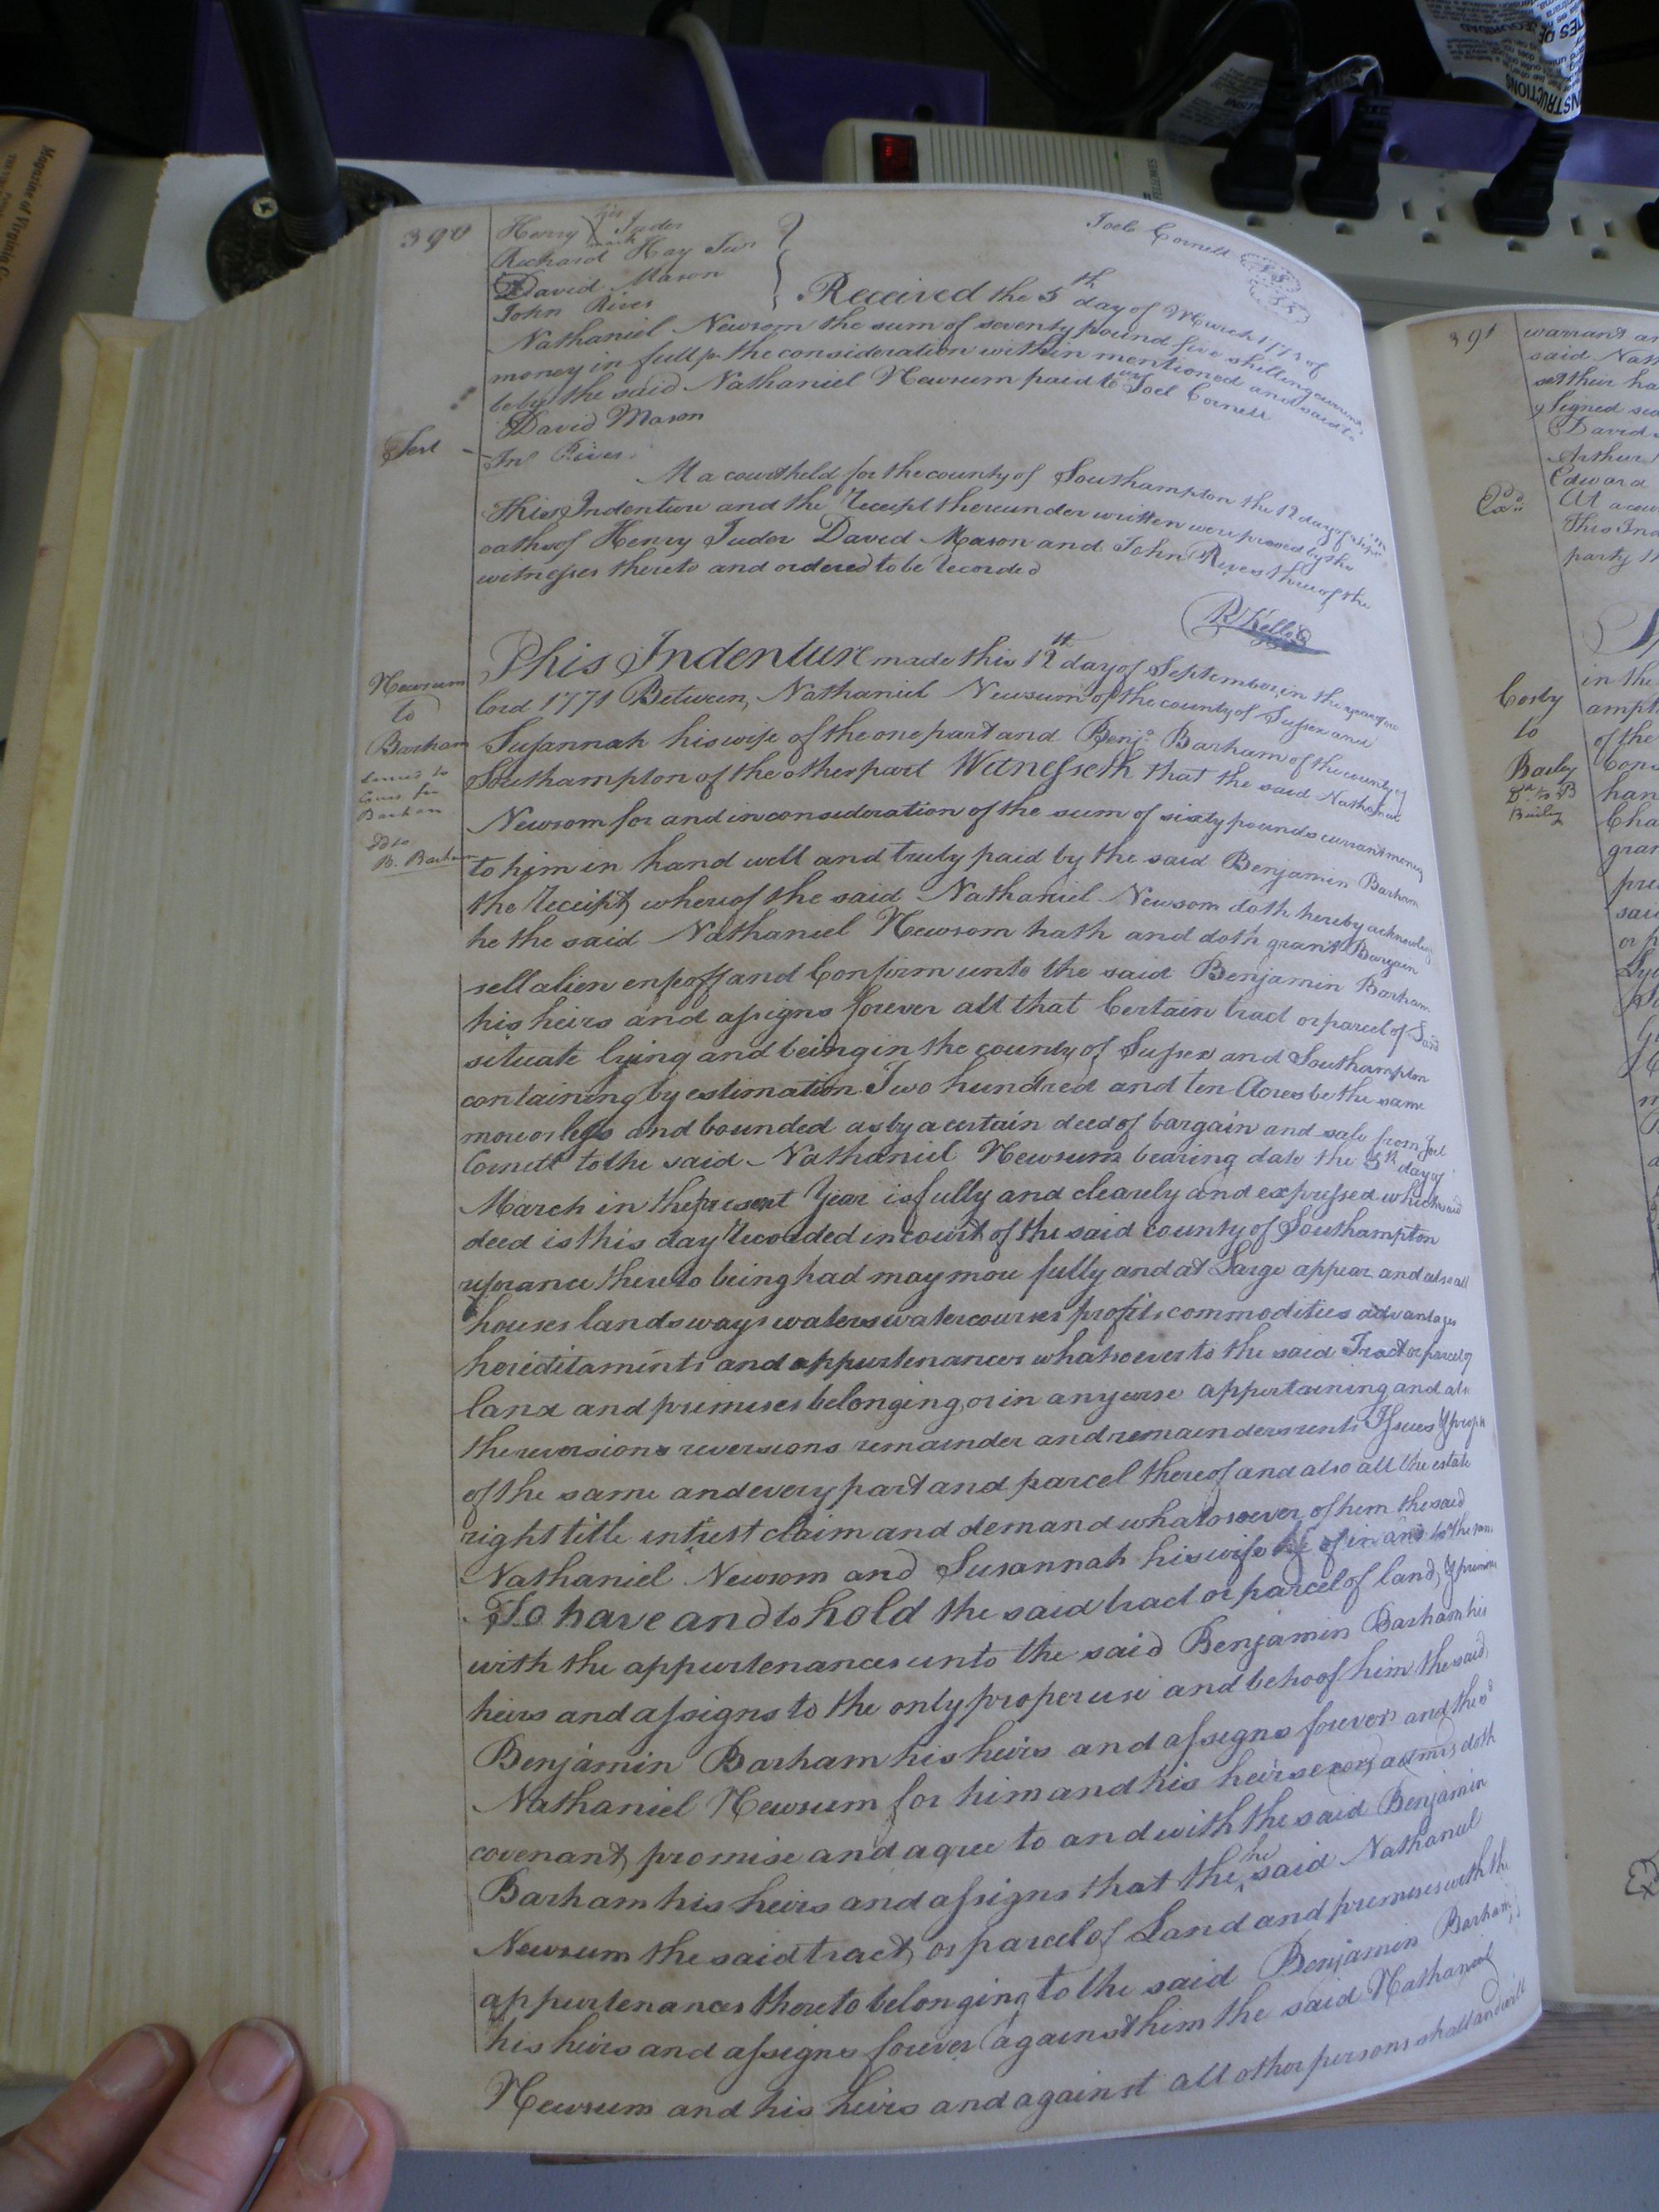 390
Henry his mark Tuder
Richard Hay Jun
David Mason
John Rives
Joel Cornell LS
Received the 5th day of March 1771 of
Nathaniel Newsom the sum of seventy pound five shilling
money in full for the consideration within mentioned and said to
be by the said Nathaniel Newsum paid to Joel Cornell
David Mason
Test
Jno Rives
At a court held for the county of Southampton the 12 day of
This Indenture and the Receipt thereunder written were proved by the
oaths of Henry Tuder David Mason and John Rives three of the
witnesses thereto and ordered to be Recorded
R Kello
Newsum
to
Barham
This Indenture made this 12th day of September in the year of our
lord 1771 Between, Nathaniel Newsum of the county of Sussex and
Susannah his wife of the one part and Benja. Barham of the county of
Southampton of the other part Witnesseth that the said Nathaniel
Newsom for and in consideration of the sum of sixty pounds currant money
to him in hand well and truly paid by the said Benjamin Barham
the Receipt whereof the said Nathaniel Newsom doth hereby acknowledge
he the said Nathaniel Newsom hath and doth grant Bargain
sell alien enfeoff and Confirm unto the said Benjamin Barham
his heirs and assigns forever all that Certain tract or parcel of Land
situate lying and being in the county of Sussex and Southampton
containing by estimation Two hundred and ten Acres be the same
more or less and bounded as by a certain deed of bargain and sale from Joel
Cornell to the said Nathaniel Newsum bearing date the 5th day of
March in the present Year is fully and clearely and expressed which said
deed is this day Recorded in court of the said county of Southampton
referance thereto being had may more fully and at Large appear and also all
houses lands ways waters watercourses profits commodities advantages
hereditaments and appurtenances whatsoever to the said Tract or parcel of
land and premises belonging or in anywise appertaining and also
the reversions reversions remainder and remainders rents Issues &
of the same and every part and parcel thereof and also all the estate
right title intrest claim and demand whatsoever of him the said
Nathaniel Newsom and Susannah his wife of in and to the same
To have and to hold the said tract or parcel of land, & premises
with the appurtenances unto the said Benjamin Barham his
heirs and assigns to the only proper use and behoof him the said
Benjamin Barham his heirs and assigns forever and the sd
Nathaniel Newsum for him and his heirs exors admrs doth
covenant, promise and agree to and with the said Benjamin
Barham his heirs and assigns that the he said Nathaniel
Newsum the said tract, or parcel of Land and premises with the
appurtenances thereto belonging to the said Benjamin Barham
his heirs and assigns forever against him the said Nathaniel
Newsum and his heirs and against all other persons shall and will
391
warrant
said
set their
Signed
David
Arthur
Edward
At a
This
party
Cosby
to
Bailey
in the
of the
INSTRUCTIONS
FELLOWES
Magazine of Virginia